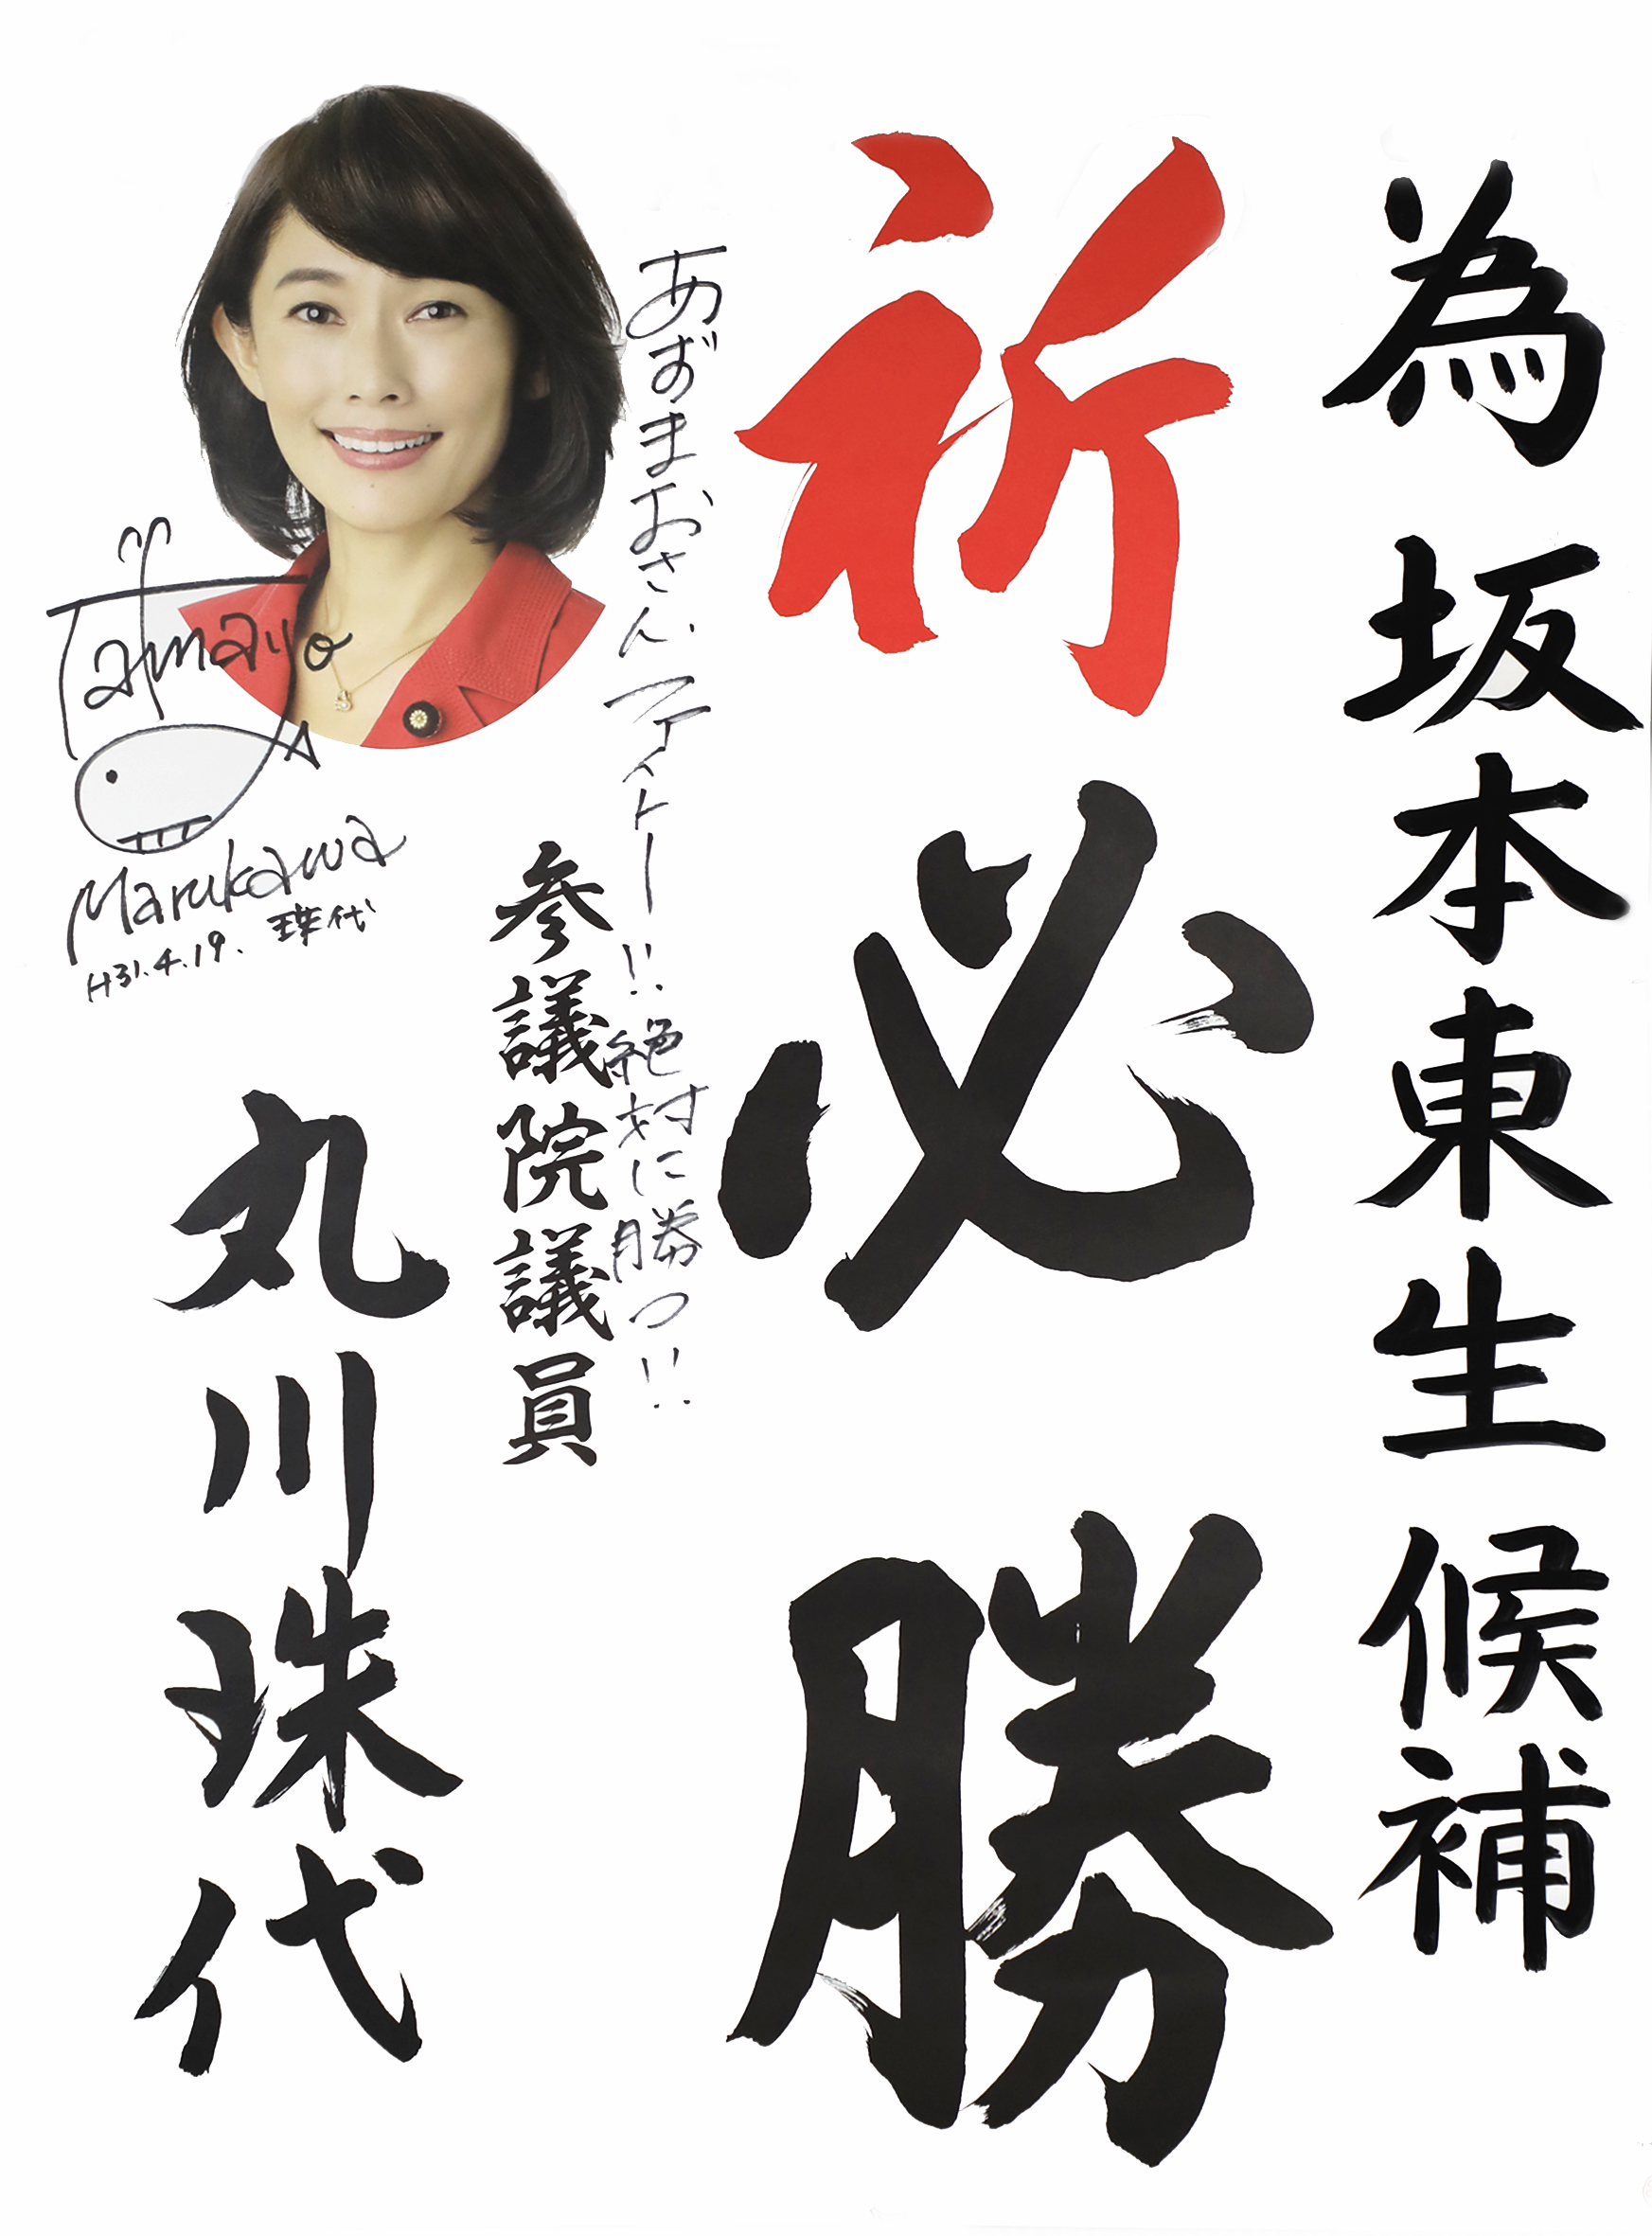 為坂本東生候補
祈必勝
あずまおさん、ファイトー!!絶対に勝つ!!
参議院議員
丸川珠代
Tamayo
Marukawa
珠代
H31.4.19.